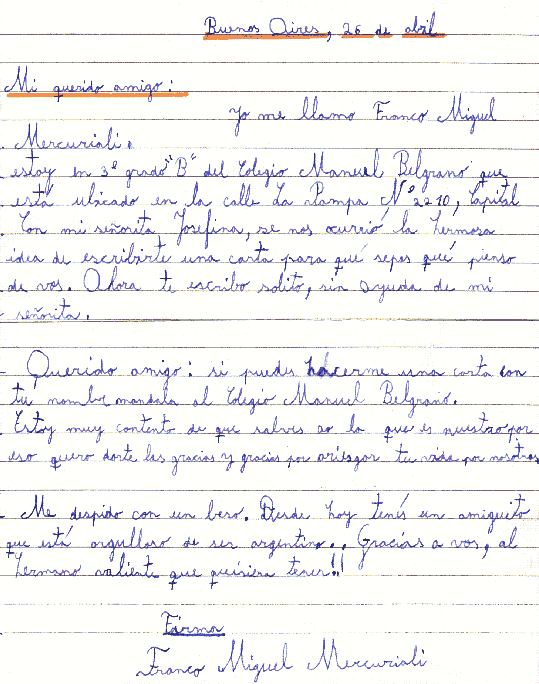 Buenos Aires, 26 de abril
Mi querido amigo:
Yo me llamo Franco Miguel
Mercuriali.
estoy en 3º grado "B" del Colegio Manuel Belgrano que
está ubicado en la calle La Pampa Nº 2210, Capital
Con mi señorita Josefina, se nos ocurrió la hermosa
idea de escribirte una carta para qué sepas qué pienso
de vos. Ahora te escribo solito, sin ayuda de mi
señorita.
Querido amigo: si puedes hacerme una carta con
tú nombre mandala al Colegio Manuel Belgrano.
Estoy muy contento de que salves lo que es nuestro por
eso quero darte las gracias y gracias por ariesgar tu vida por nosotros
Me despido con un beso. Desde hoy tenés un amiguito
que está orgulloso de ser argentino.. Gracias a vos, al
hermano valiente que quisiera tener!!
Firma
Franco Miguel Mercuriali